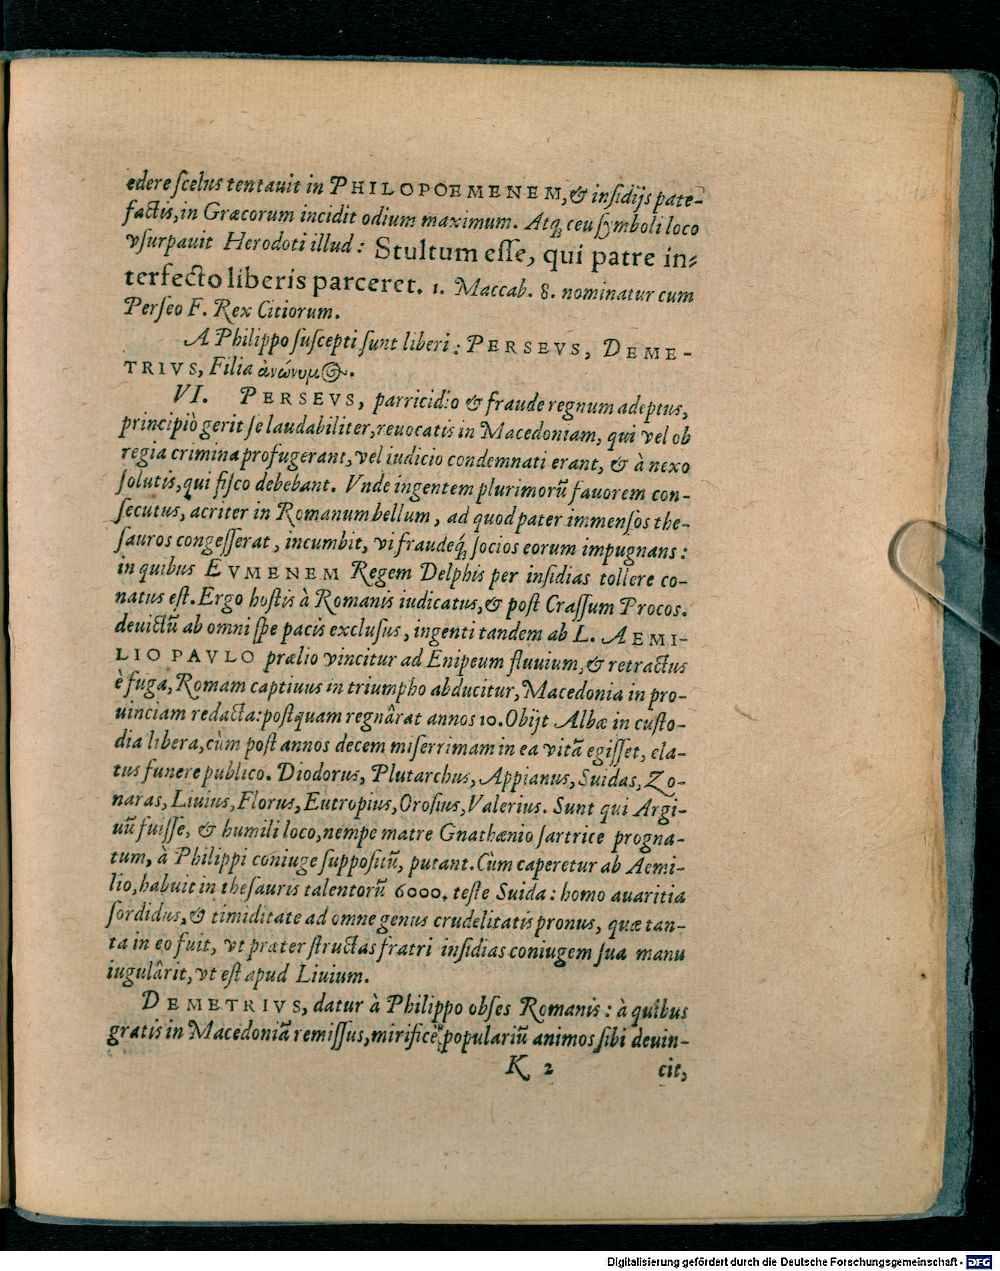 edere ſcelus tentauit in PHILOPOEMENEM, & inſidijs pate-
factis, in Græcorum incidit odium maximum. Atq; ceu ſymboli loco
vſurpauit Herodoti illud: Stultum eſſe, qui patre in-
terfecto liberis parceret. 1. Maccab. 8. nominatur cum
Perſeo F. Rex Citiorum.
A Philippo ſuſcepti ſunt liberi: PERSEVS, DEME-
TRIVS, Filia ἀνώνυμ .
VI. PERSEVS, parricidio & fraude regnum adeptus,
principiò gerit ſe laudabiliter, reuocatis in Macedoniam, qui vel ob
regia crimina profugerant, vel iudicio condemnati erant, & à nexo
ſolutis, qui fiſco debebant. Vnde ingentem plurimorũ fauorem con-
ſecutus, acriter in Romanum bellum, ad quod pater immenſos the-
ſauros congeſſerat, incumbit, vi fraudeq́; ſocios eorum impugnans:
in quibus EVMENEM Regem Delphis per inſidias tollere co-
natus eſt. Ergo hoſtis à Romanis iudicatus, & poſt Craſſum Procos.
deuictũ ab omni ſpe pacis excluſus, ingenti tandem ab L. AEMI-
LIO PAVLO prælio vincitur ad Enipeum fluuium, & retractus
è fuga, Romam captiuus in triumpho abducitur, Macedonia in pro-
uinciam redacta: poſtquam regnârat annos 10. Obijt Albæ in cuſto-
dia libera, cùm poſt annos decem miſerrimam in ea vitã egiſſet, ela-
tus funere publico. Diodorus, Plutarchus, Appianus, Suidas, Zo-
naras, Liuius, Florus, Eutropius, Oroſius, Valerius. Sunt qui Argi-
uũ fuiſſe, & humili loco, nempe matre Gnathænio ſartrice progna-
tum, à Philippi coniuge ſuppoſitũ, putant. Cùm caperetur ab Aemi-
lio, habuit in theſauris talentorũ 6000. teſte Suida: homo auaritia
ſordidus, & timiditate ad omne genus crudelitatis pronus, quæ tan-
ta in eo fuit, vt præter ſtructas fratri inſidias coniugem ſua manu
iugulârit, vt eſt apud Liuium.
DEMETRIVS, datur à Philippo obſes Romanis: à quibus
gratis in Macedoniã remiſſus, mirificè popularium animos ſibi deuin-
K 2 cit,
Digitalisierung gefördert durch die Deutsche Forschungsgemeinschaft - DFG